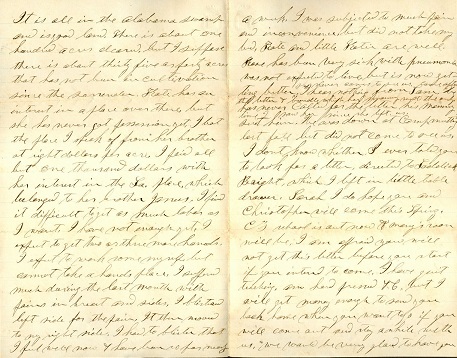 It is all in the Alabama swamp
and is good land. There is about one
hundred acres cleared but I suppose
there is about thirty five or forty acres
that has not been in cultivation
since the surrender. Kate has an
interest in a place over there but
she has never got possession yet, I bot
the place I speak of from her brother
at eight dollars per acre, I paid all
but one thousand dollars with
her interest in the La. place, which
belonged to her brother James. I find
it difficult to get as much labor as
I want. I have not enough yet, I
expect to get two or three more hands.
I expect to work some myself but
cannot take a hands place. I suffered
much during the last month with
pains in breast and sides, I blistered
left side for the pain, It then moved
to my right side. I had to blister that
I feel well now & have been so for many
a week I was subjected to much pain
and inconvenience but did not take my
bed, Kate and little Katie are well.
has been very sick with pneumonia
was not expected to live but is now get-
ting better,
the letter & bundle
has never called for
last fall but did not come to see us
I don't know whether I ever told you
to look for a letter directed to
Haight, which I left in little table
drawer. Sarah I do hope you and
Christopher will come this Spring.
school is out now & may soon
will be, I am afraid you will
not get this letter before you start
if you intend to come, I have quit
am hard pressed but I
will get money enough to send you
back home when you want to go if you
will come out and stay awhile with
us, we would be very glad to have you